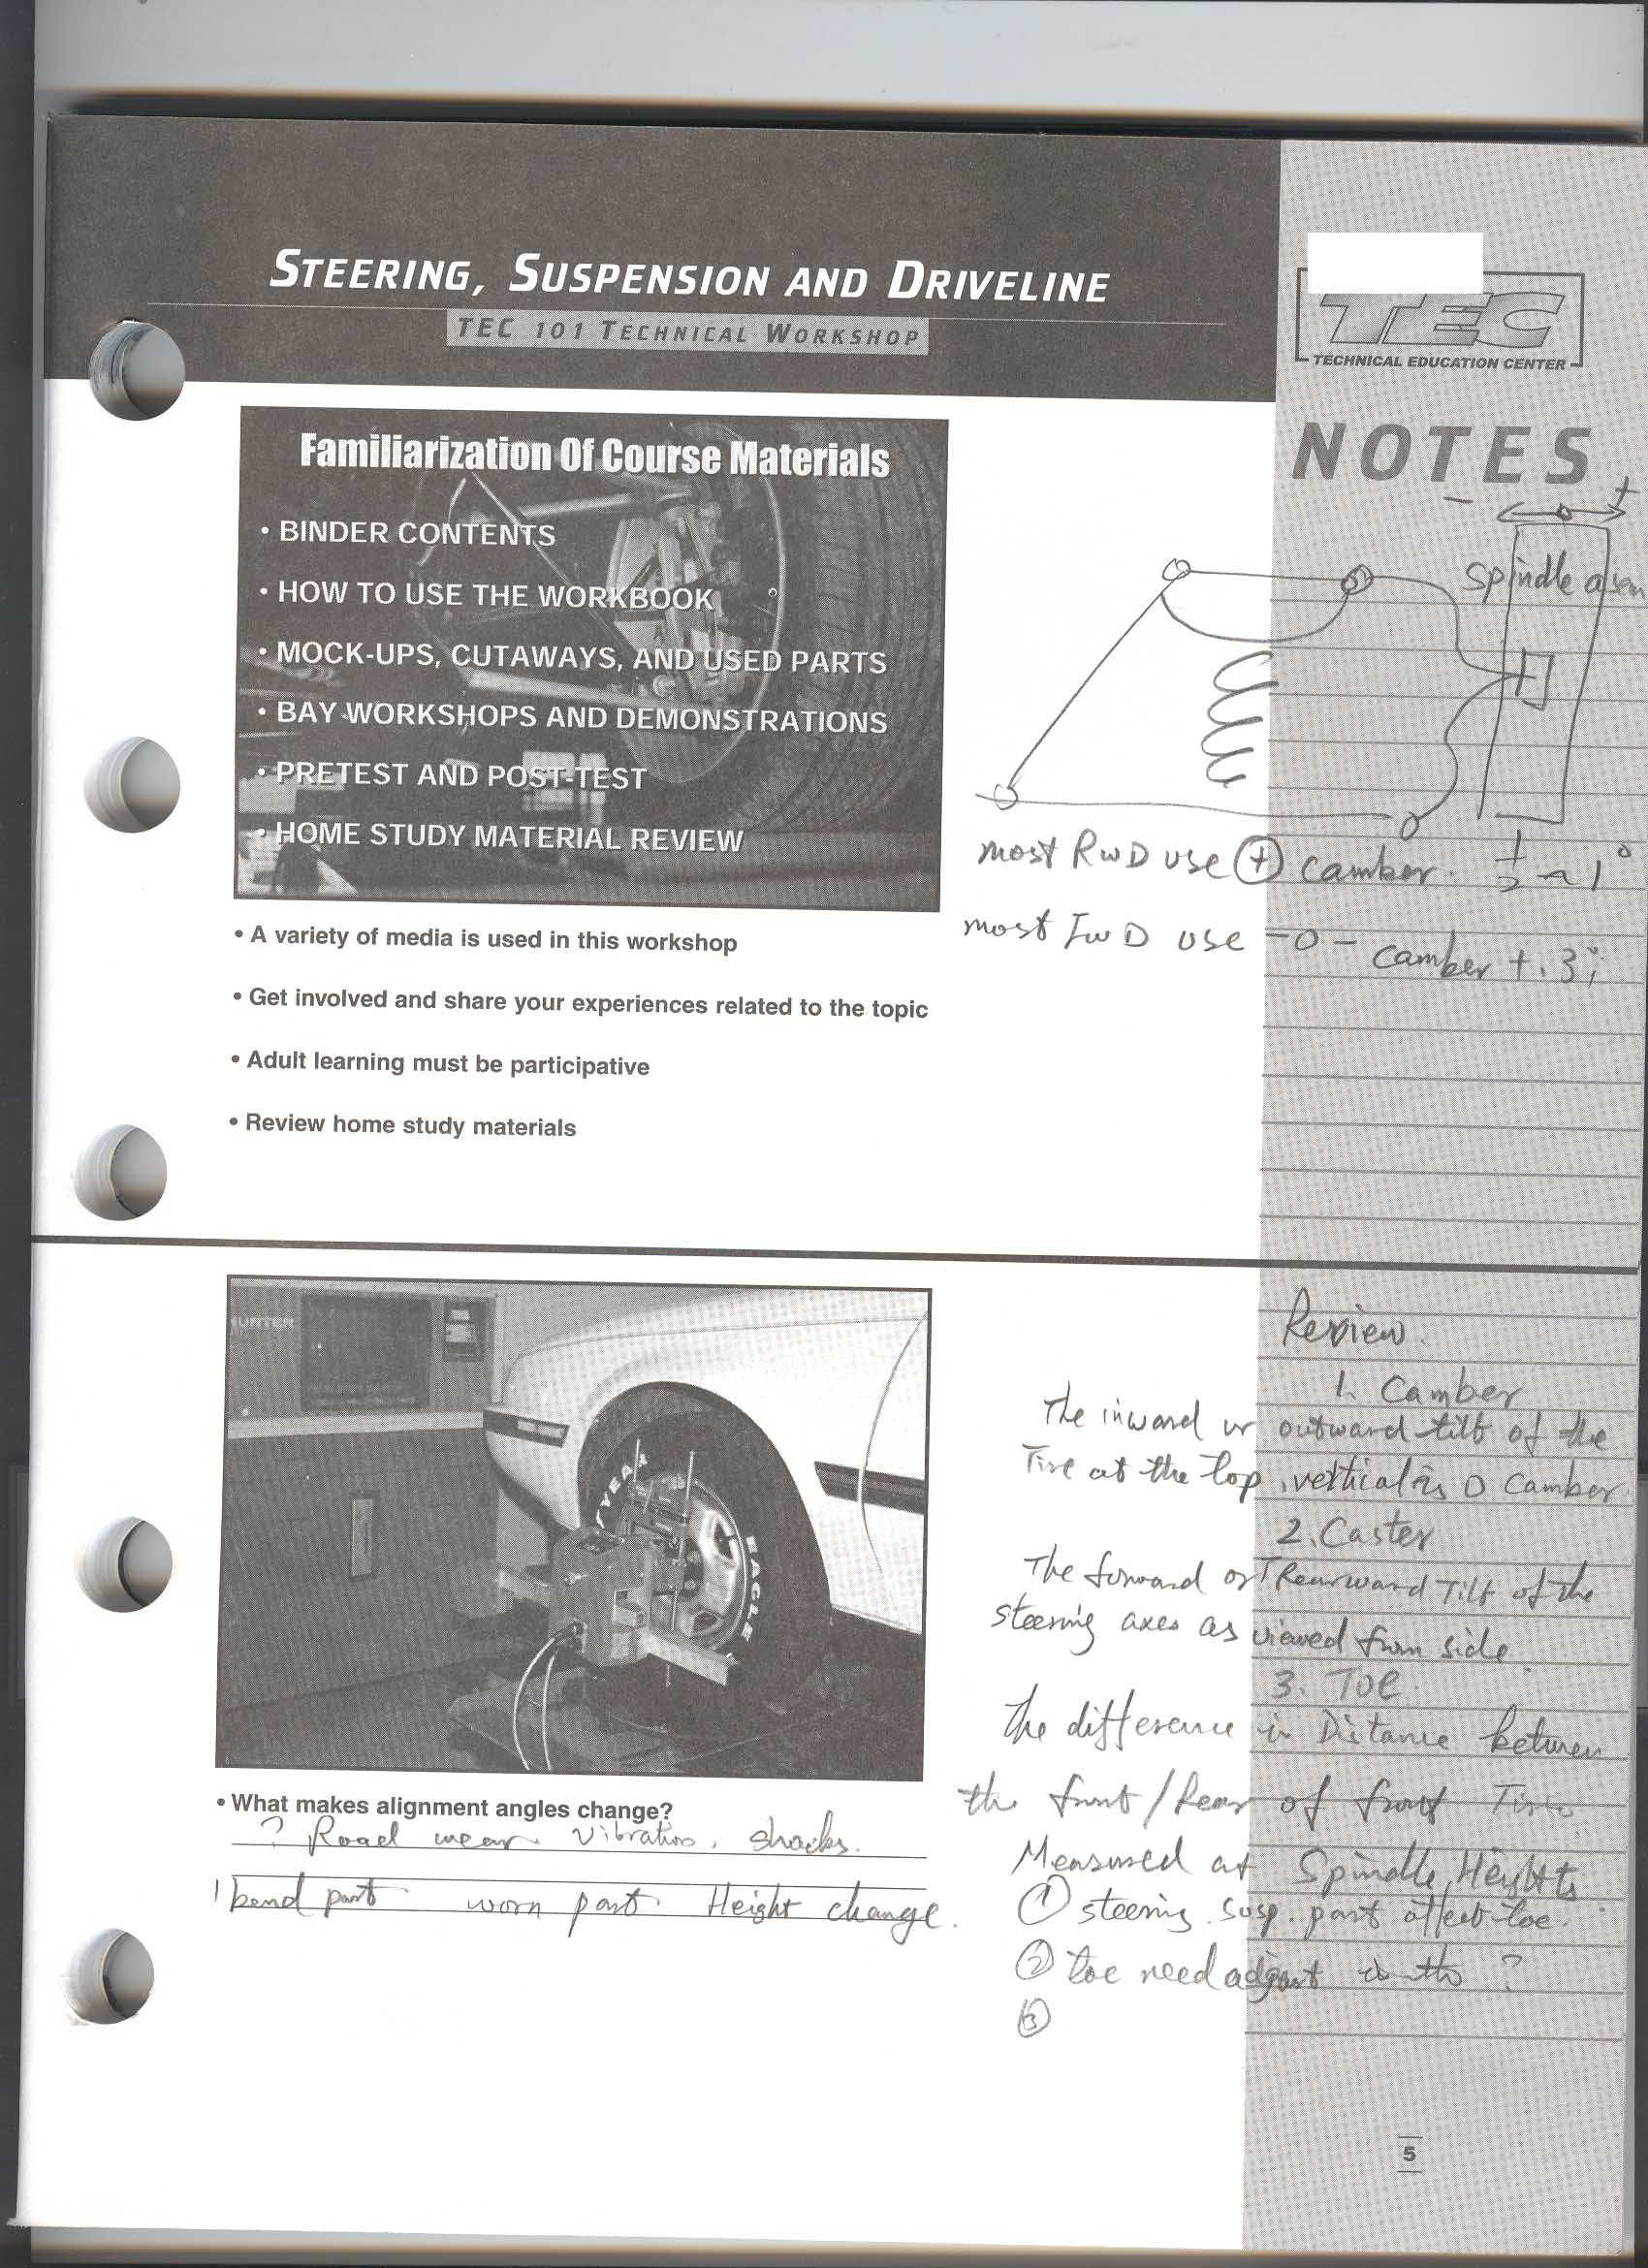 STEERING, SUSPENSION AND DRIVELINE
TEC 101 TECHNICAL WORKSHOP
TEC
TECHNICAL EDUCATION CENTER
NOTES
Familiarization Of Course Materials
• BINDER CONTENTS
• HOW TO USE THE WORKBOOK
• MOCK-UPS, CUTAWAYS, AND USED PARTS
• BAY WORKSHOPS AND DEMONSTRATIONS
• PRETEST AND POST-TEST
• HOME STUDY MATERIAL REVIEW
− +
Spindle
most RWD use + camber. 1/2 ~ 1°
most FWD use -0- camber +.3°
• A variety of media is used in this workshop
• Get involved and share your experiences related to the topic
• Adult learning must be participative
• Review home study materials
HUNTER
YEAR
EAGLE
Review.
1. Camber
The inward or outward tilt of the
Tire at the Top, vertical is 0 Camber
2. Caster
The forward or Rearward Tilt of the
steering axes as viewed from side
3. TOE
The difference in Distance between
the front/Rear of front Tire
Measured at Spindle Height
① steering. susp. part affect toe.
② toe need ?
③
• What makes alignment angles change?
? Road wear. vibration, shocks.
1 bend part worn part. Height change.
5